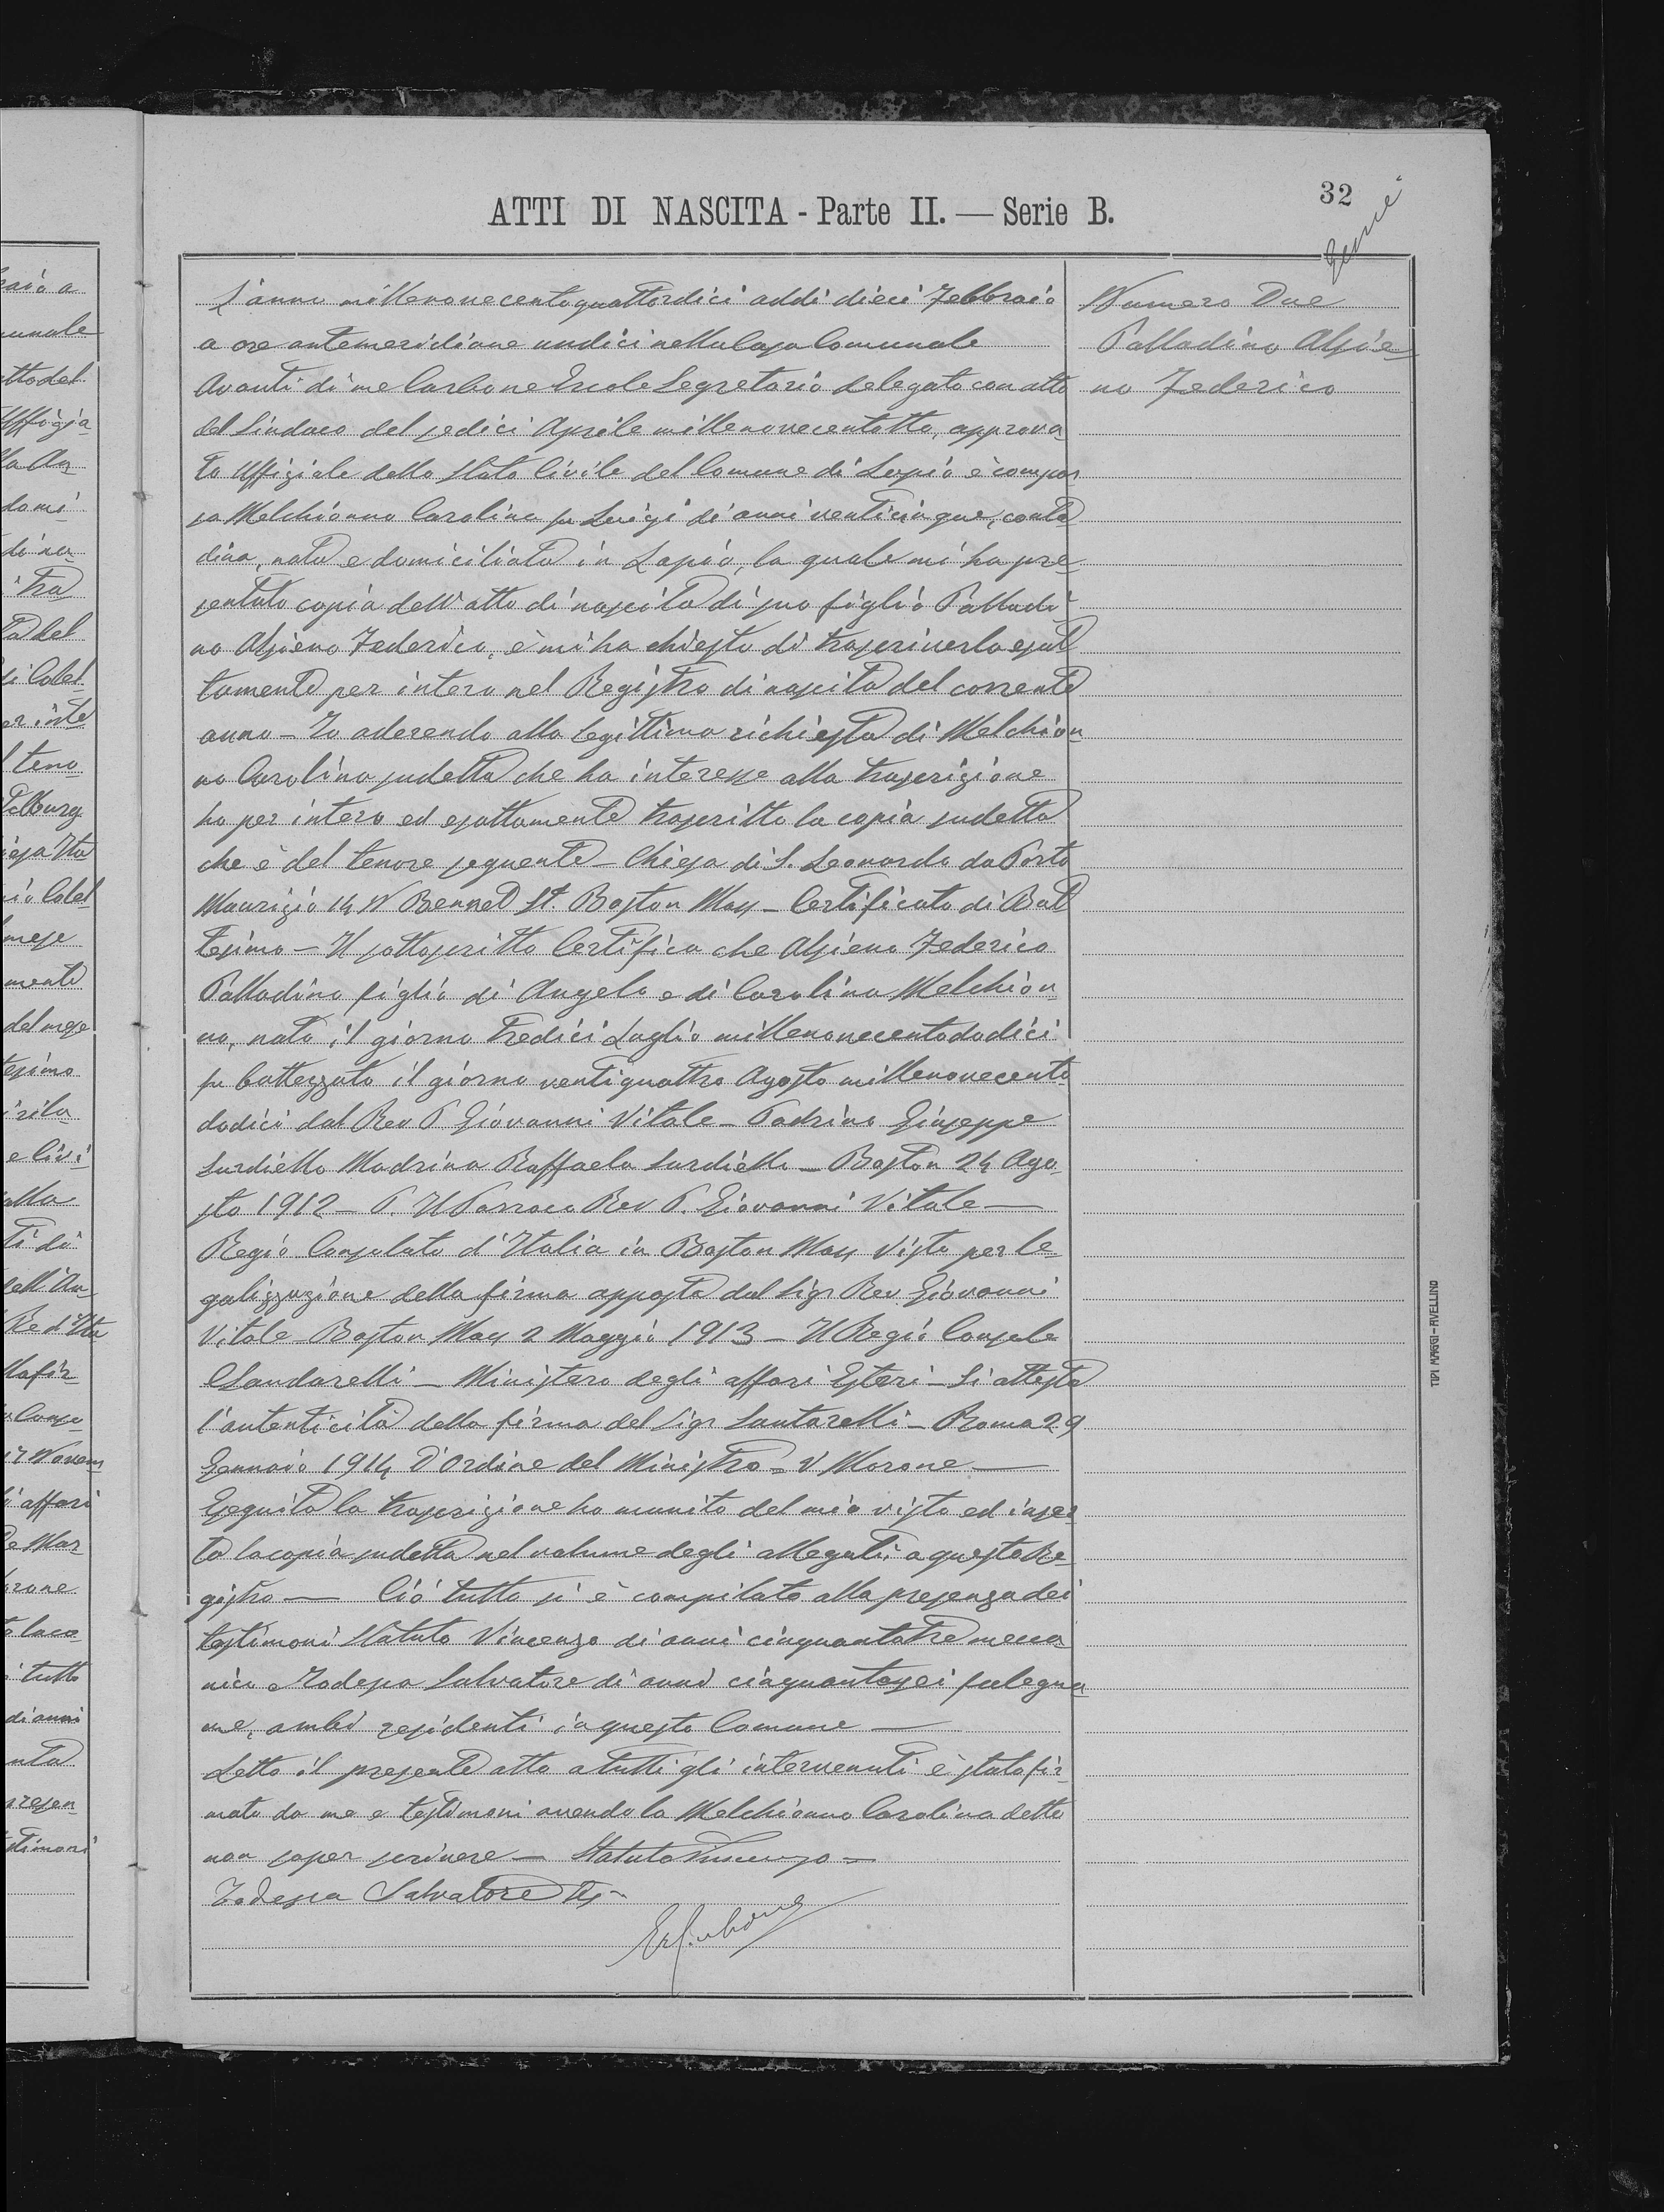 32
ATTI DI NASCITA - Parte II. — Serie B.
L'anno millenovecentoquattordici addì dieci Febbraio
a ore antemeridiane undici nella Casa Comunale
Avanti di me Carbone Ercole Segretario delegato con atto
del Sindaco del sedici Aprile millenovecentotto, approva
to Uffiziale dello Stato Civile del Comune di Lapio è compar
sa Melchionno Carolina fu Luigi di anni venticinque, conta
dina, nata e domiciliata in Lapio, la quale mi ha pre
sentato copia dell'atto di nascita di suo figlio Palladi
no Alfieno Federico, e mi ha chiesto di trascriverlo esat
tamente per intero nel Registro di nascita del corrente
anno — Io aderendo alla legittima richiesta di Melchion
no Carolina sudetta che ha interesse alla trascrizione
ho per intero ed esattamente trascritto la copia sudetta
che è del tenore seguente — Chiesa di S. Leonardo da Porto
Maurizio 14 N Bennet St. Boston Mass — Certificato di Bat
tesimo — Il sottoscritto Certifica che Alfieno Federico
Palladino figlio di Angelo e di Carolina Melchion
no, nato il giorno tredici Luglio millenovecentododici
fu battezzato il giorno ventiquattro Agosto millenovecento
dodici dal Rev P. Giovanni Vitale — Padrino Giuseppe
Surdiello Madrina Raffaela Surdiello — Boston 24 Ago
sto 1912 — P. Il Parroco Rev P. Giovanni Vitale —
Regio Consolato d'Italia in Boston Mass Visto per le
galizzazione della firma apposta dal Sigr Rev. Giovanni
Vitale Boston Mass 2 Maggio 1913 — Il Regio Console
Ministero degli affari Esteri — Si attesta
l'autenticità della firma del Sigr Santarelli — Roma 29
Gennaio 1914 D'Ordine del Ministro = V Morone —
Eseguita la trascrizione ho munito del mio visto ed inser
to la copia sudetta nel volume degli allegati a questo Re
gistro — Ciò tutto si è compilato alla presenza dei
testimoni Statuto Vincenzo di anni cinquantatre mecca
nico Todesca Salvatore di anni cinquantasei falegna
me, ambi residenti in questo Comune —
Letto il presente atto a tutti gli intervenuti è stato fir
mato da me e testimoni avendo la Melchionno Carolina detto
non saper scrivere — Statuto Vincenzo =
Todesca Salvatore
Numero Due
Palladino Alfie
no Federico
TIPI MAGGI - AVELLINO